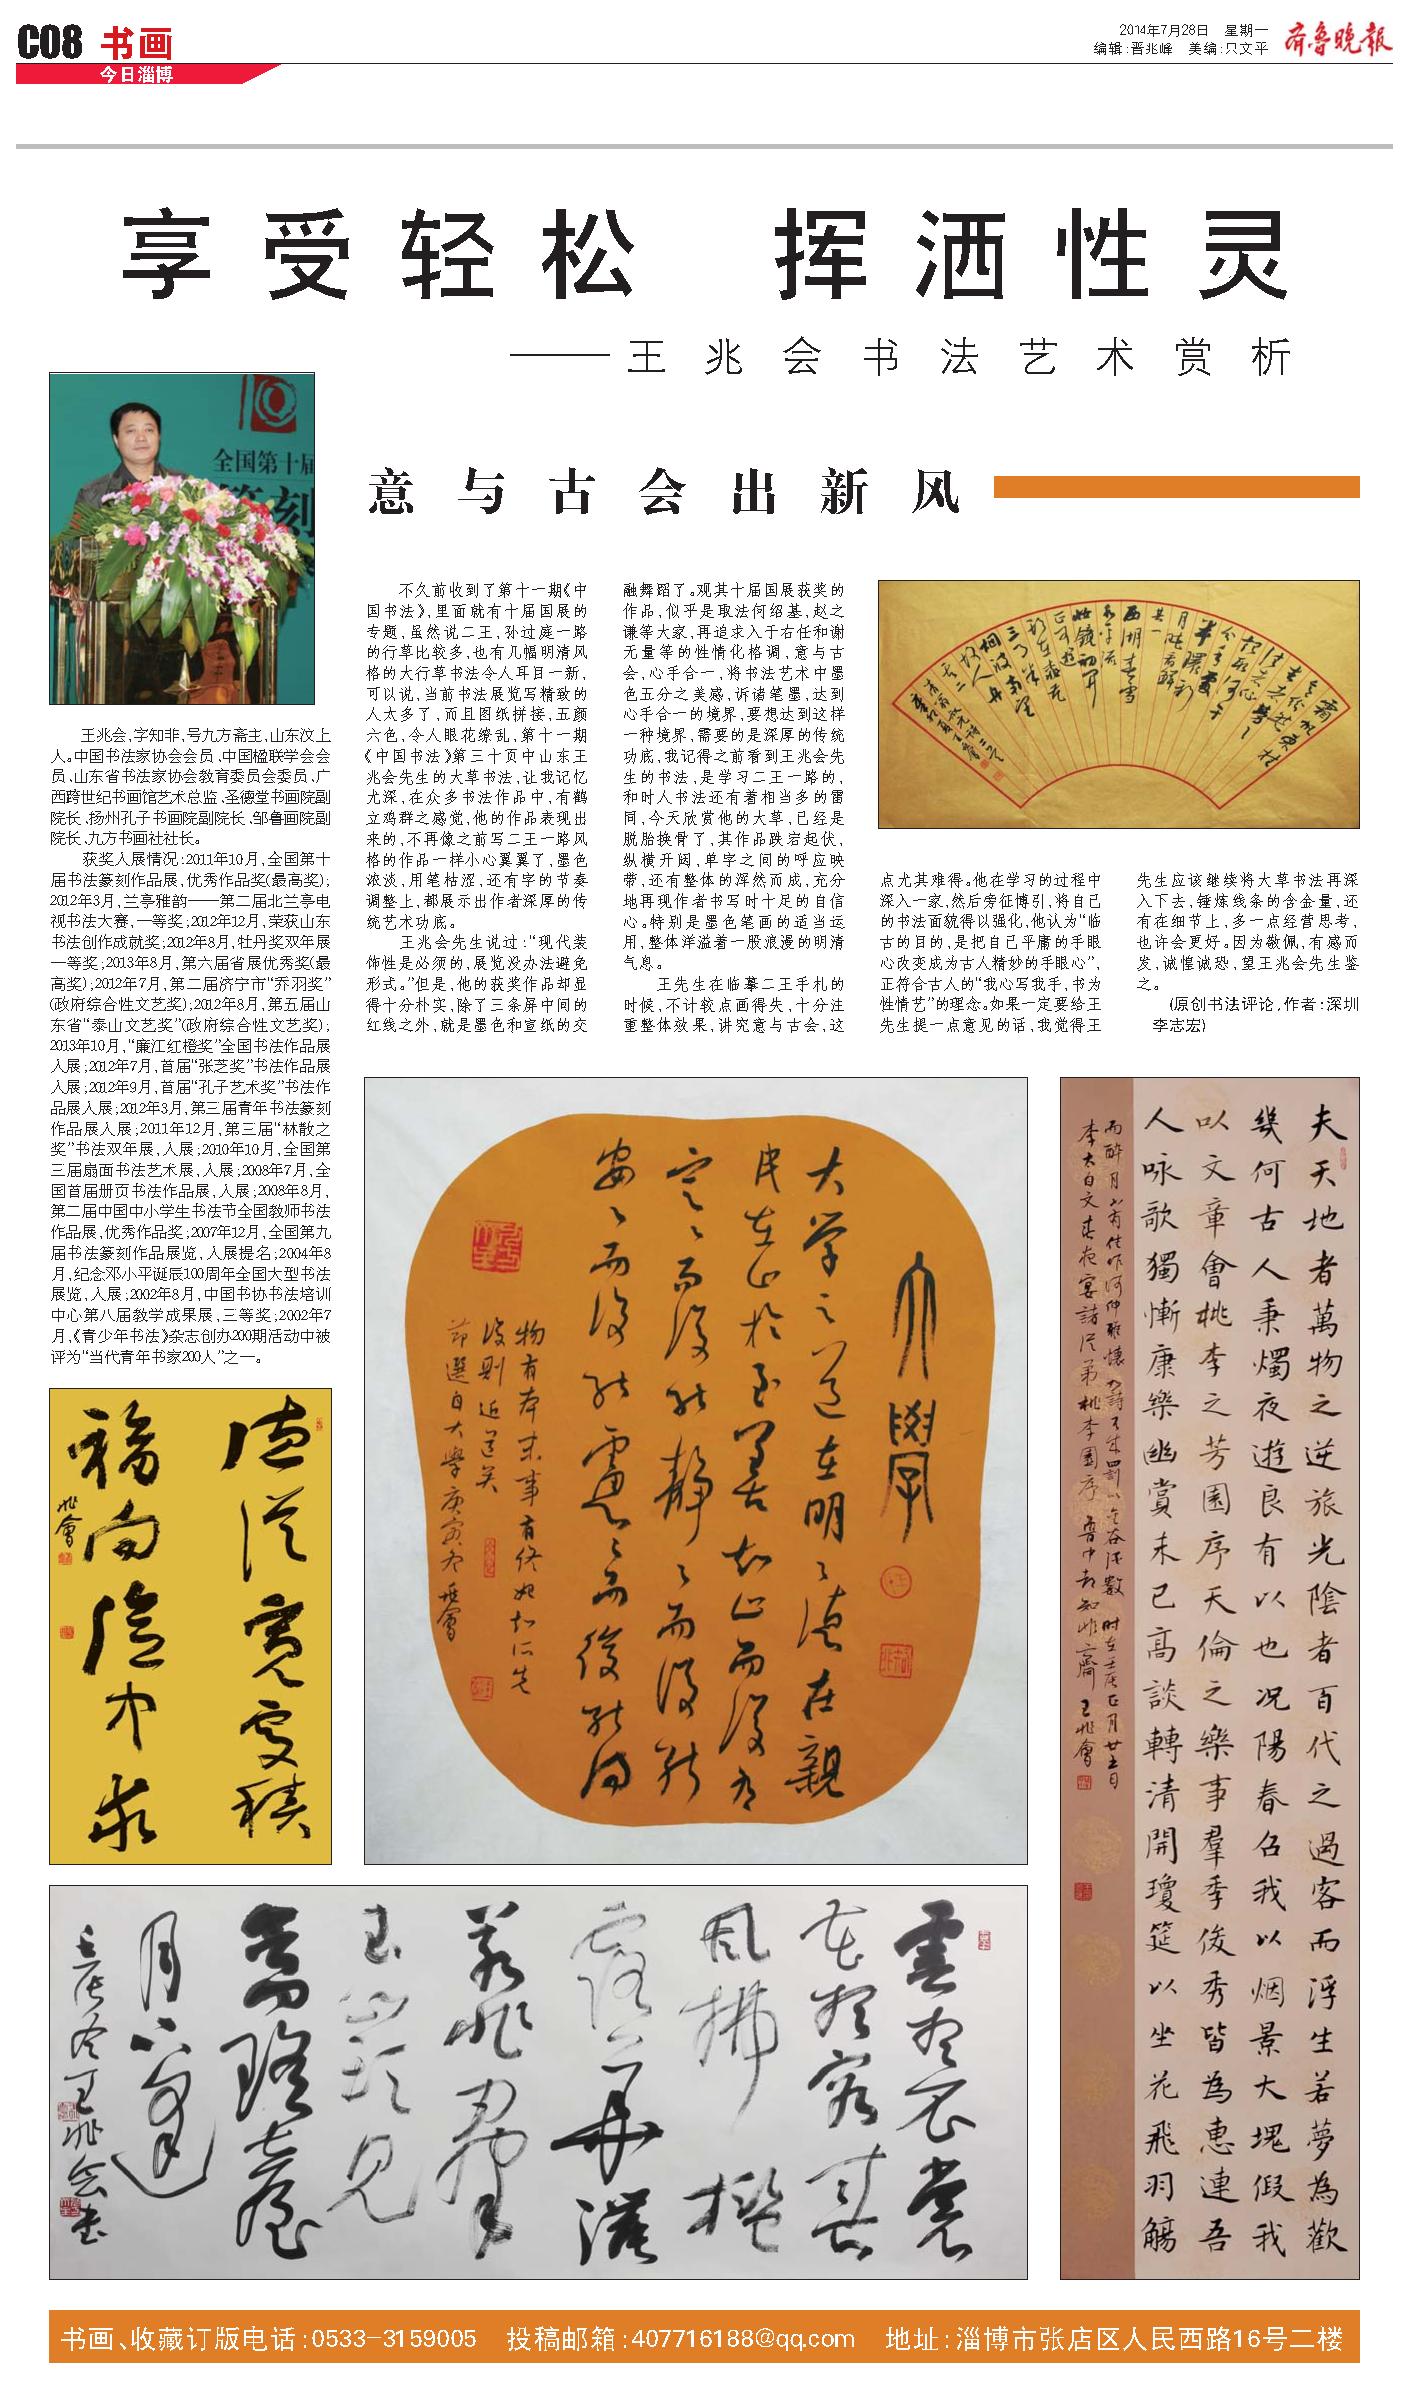 C08 书画
今日淄博
2014年7月28日 星期一
编辑:晋兆峰 美编:只文平
齐鲁晚报
享受轻松 挥洒性灵
——王兆会书法艺术赏析
全国第十届
意与古会出新风
王兆会,字知非,号九方斋主,山东汶上
人。中国书法家协会会员、中国楹联学会会
员、山东省书法家协会教育委员会委员、广
西跨世纪书画馆艺术总监、圣德堂书画院副
院长、扬州孔子书画院副院长、邹鲁画院副
院长、九方书画社社长。
获奖入展情况:2011年10月,全国第十
届书法篆刻作品展,优秀作品奖(最高奖);
2012年3月,兰亭雅韵——第二届北兰亭电
视书法大赛,一等奖;2012年12月,荣获山东
书法创作成就奖;2012年8月,牡丹奖双年展
一等奖;2013年8月,第六届省展优秀奖(最
高奖);2012年7月,第二届济宁市“乔羽奖”
(政府综合性文艺奖);2012年8月,第五届山
东省“泰山文艺奖”(政府综合性文艺奖);
2013年10月,“廉江红橙奖”全国书法作品展
入展;2012年7月,首届“张芝奖”书法作品展
入展;2012年9月,首届“孔子艺术奖”书法作
品展入展;2012年3月,第三届青年书法篆刻
作品展入展;2011年12月,第三届“林散之
奖”书法双年展,入展;2010年10月,全国第
三届扇面书法艺术展,入展;2008年7月,全
国首届册页书法作品展,入展;2008年8月,
第二届中国中小学生书法节全国教师书法
作品展,优秀作品奖;2007年12月,全国第九
届书法篆刻作品展览,入展提名;2004年8
月,纪念邓小平诞辰100周年全国大型书法
展览,入展;2002年8月,中国书协书法培训
中心第八届教学成果展,三等奖;2002年7
月,《青少年书法》杂志创办200期活动中被
评为“当代青年书家200人”之一。
不久前收到了第十一期《中
国书法》,里面就有十届国展的
专题,虽然说二王,孙过庭一路
的行草比较多,也有几幅明清风
格的大行草书法令人耳目一新,
可以说,当前书法展览写精致的
人太多了,而且图纸拼接,五颜
六色,令人眼花缭乱,第十一期
《中国书法》第三十页中山东王
兆会先生的大草书法,让我记忆
尤深,在众多书法作品中,有鹤
立鸡群之感觉,他的作品表现出
来的,不再像之前写二王一路风
格的作品一样小心翼翼了,墨色
浓淡,用笔枯涩,还有字的节奏
调整上,都展示出作者深厚的传
统艺术功底。
王兆会先生说过:“现代装
饰性是必须的,展览没办法避免
形式。”但是,他的获奖作品却显
得十分朴实,除了三条屏中间的
红线之外,就是墨色和宣纸的交
融舞蹈了。观其十届国展获奖的
作品,似乎是取法何绍基,赵之
谦等大家,再追求入于右任和谢
无量等的性情化格调,意与古
会,心手合一,将书法艺术中墨
色五分之美感,诉诸笔墨,达到
心手合一的境界,要想达到这样
一种境界,需要的是深厚的传统
功底,我记得之前看到王兆会先
生的书法,是学习二王一路的,
和时人书法还有着相当多的雷
同,今天欣赏他的大草,已经是
脱胎换骨了,其作品跌宕起伏,
纵横开阔,单字之间的呼应映
带,还有整体的浑然而成,充分
地再现作者书写时十足的自信
心。特别是墨色笔画的适当运
用,整体洋溢着一股浪漫的明清
气息。
王先生在临摹二王手札的
时候,不计较点画得失,十分注
重整体效果,讲究意与古会,这
点尤其难得。他在学习的过程中
深入一家,然后旁征博引,将自己
的书法面貌得以强化,他认为“临
古的目的,是把自己平庸的手眼
心改变成为古人精妙的手眼心”,
正符合古人的“我心写我手,书为
性情艺”的理念。如果一定要给王
先生提一点意见的话,我觉得王
先生应该继续将大草书法再深
入下去,锤炼线条的含金量,还
有在细节上,多一点经营思考,
也许会更好。因为敬佩,有感而
发,诚惶诚恐,望王兆会先生鉴
之。
(原创书法评论,作者:深圳
李志宏)
德從寬處積
福向儉中求
兆會
大學
大学之道在明明德在親
民在止於至善知止而後有
定定而後能靜靜而後能
安安而後能慮慮而後能得
物有本末事有终始知所先
後則近道矣
节選自大學庚寅冬兆會
夫天地者萬物之逆旅光陰者百代之過客而浮生若夢為歡
幾何古人秉燭夜遊良有以也况陽春召我以烟景大塊假我
以文章會桃李之芳園序天倫之樂事羣季俊秀皆為惠連吾
人咏歌獨慚康樂幽賞未已高談轉清開瓊筵以坐花飛羽觴
而醉月不有佳作何伸雅懷如詩不成罰以金谷酒數 时在壬辰正月廿五日
李太白文春夜宴諸從弟桃李園序 魯中都知非齋 王兆會
雲想衣裳
花想容春
風拂檻
露華濃
若非羣
玉山頭見
會向瑤臺
月下逢
壬辰冬王兆会书
书画、收藏订版电话:0533-3159005 投稿邮箱:407716188@qq.com 地址:淄博市张店区人民西路16号二楼